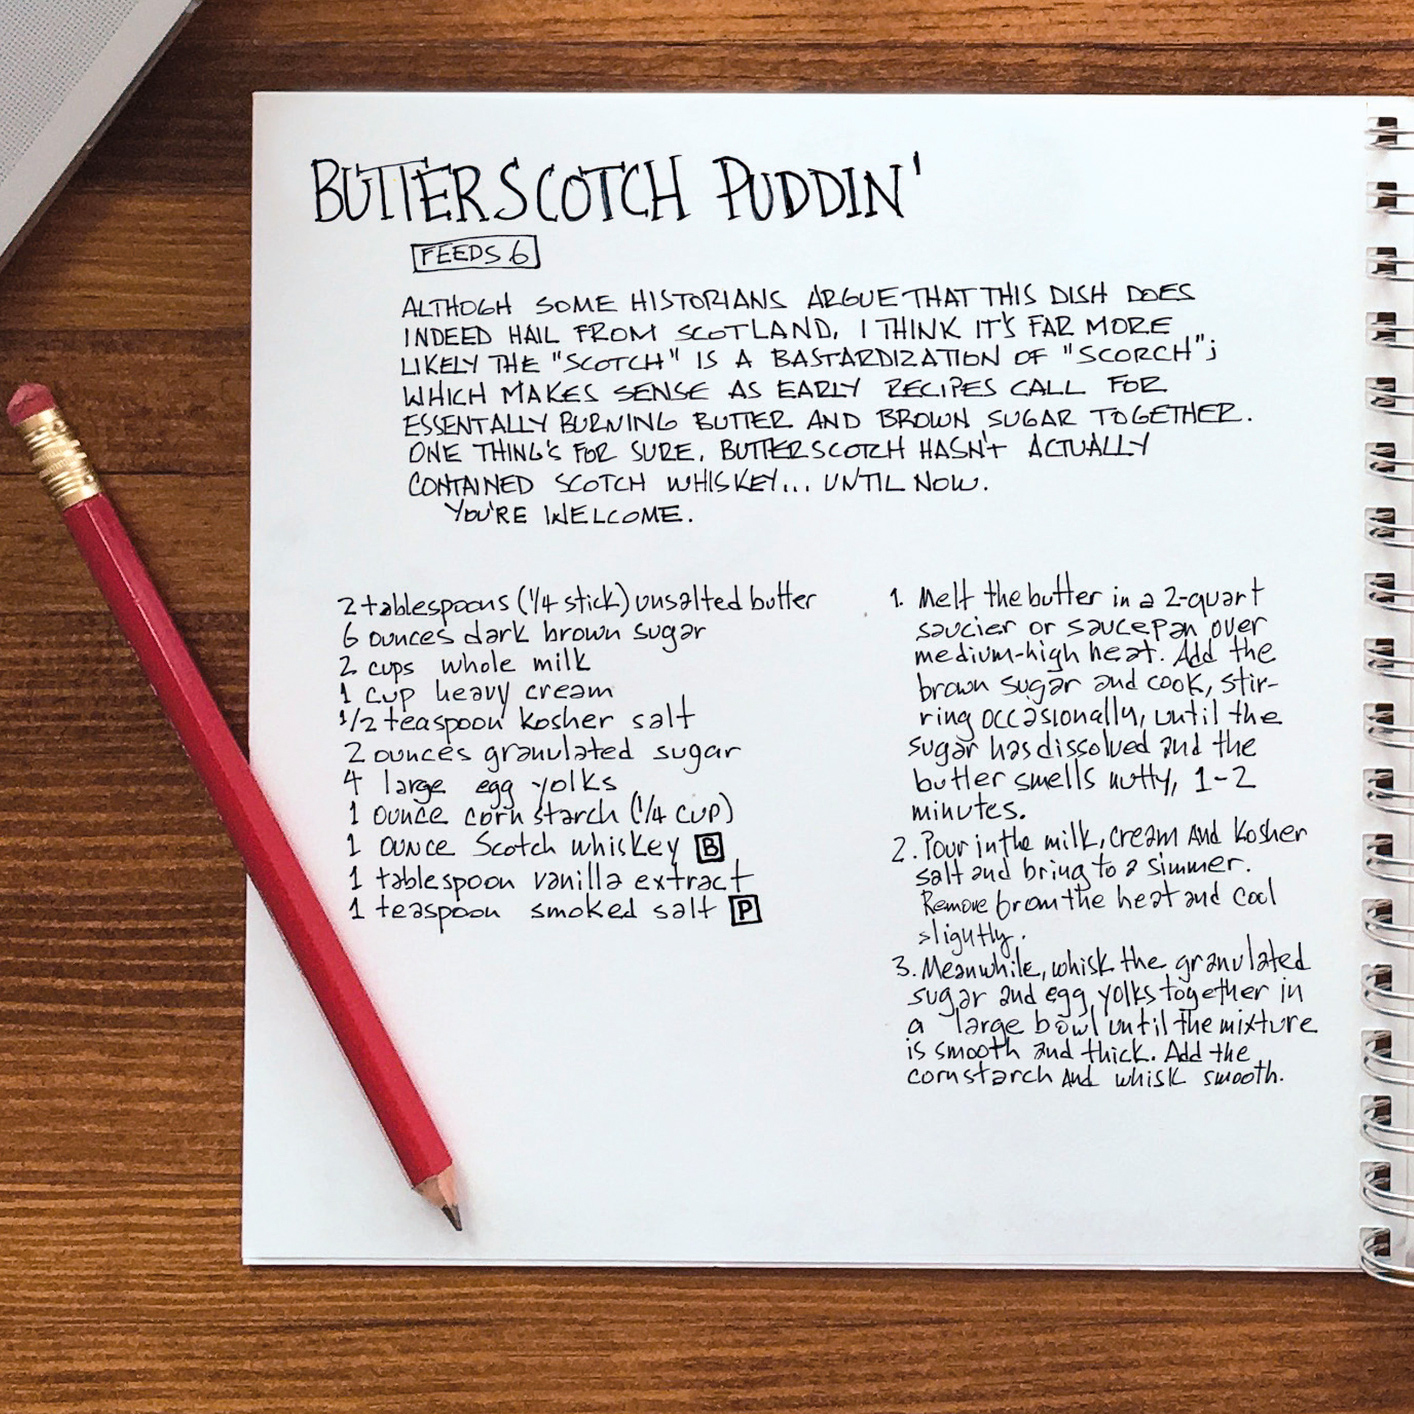 BUTTERSCOTCH PUDDIN'
FEEDS 6
ALTHOGH SOME HISTORIANS ARGUE THAT THIS DISH DOES
INDEED HAIL FROM SCOTLAND, I THINK IT'S FAR MORE
LIKELY THE "SCOTCH" IS A BASTARDIZATION OF "SCORCH";
WHICH MAKES SENSE AS EARLY RECIPES CALL FOR
ESSENTALLY BURNING BUTTER AND BROWN SUGAR TOGETHER.
ONE THING'S FOR SURE, BUTTERSCOTCH HASN'T ACTUALLY
CONTAINED SCOTCH WHISKEY... UNTIL NOW.
YOU'RE WELCOME.
2 tablespoons (1/4 stick) unsalted butter
6 ounces dark brown sugar
2 cups whole milk
1 cup heavy cream
1/2 teaspoon kosher salt
2 ounces granulated sugar
4 large egg yolks
1 ounce corn starch (1/4 cup)
1 ounce Scotch whiskey B
1 tablespoon vanilla extract
1 teaspoon smoked salt P
1. Melt the butter in a 2-quart
saucier or saucepan over
medium-high heat. Add the
brown sugar and cook, stir-
ring occasionally, until the
sugar has dissolved and the
butter smells nutty, 1-2
minutes.
2. Pour in the milk, cream and kosher
salt and bring to a simmer.
Remove from the heat and cool
slightly.
3. Meanwhile, whisk the granulated
sugar and egg yolks together in
a large bowl until the mixture
is smooth and thick. Add the
cornstarch and whisk smooth.